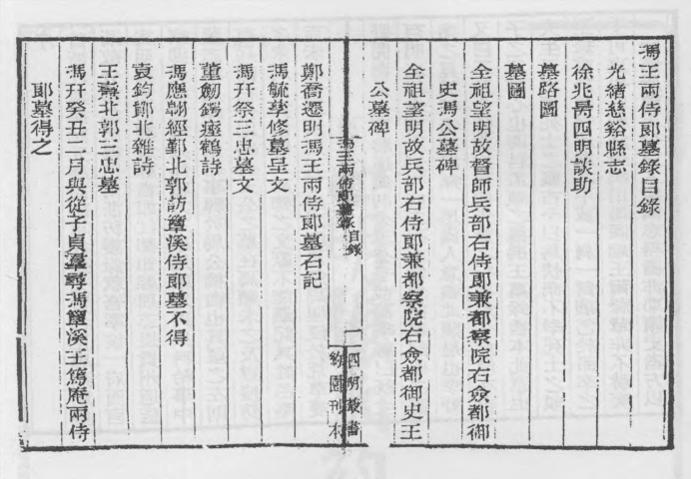 馮王兩侍郞墓錄目錄
光緒慈谿縣志
徐兆昺四明談助
墓路圖
墓圖
全祖望明故督師兵部右侍郞兼都察院右僉都御
史馮公墓碑
全祖望明故兵部右侍郞兼都察院右僉都御史王
公墓碑
馮王兩侍郞墓錄 目錄
一
四明叢書
約園刊本
鄭喬遷明馮王兩侍郞墓石記
馮毓孶修墓呈文
馮幵祭三忠墓文
董劒鍔瘞鶴詩
馮應翺經鄞北郭訪簟溪侍郞墓不得
袁鈞鄮北雜詩
王壽北郭三忠墓
馮幵癸丑二月與從子貞羣尋馮簟溪王篤庵兩侍
郞墓得之